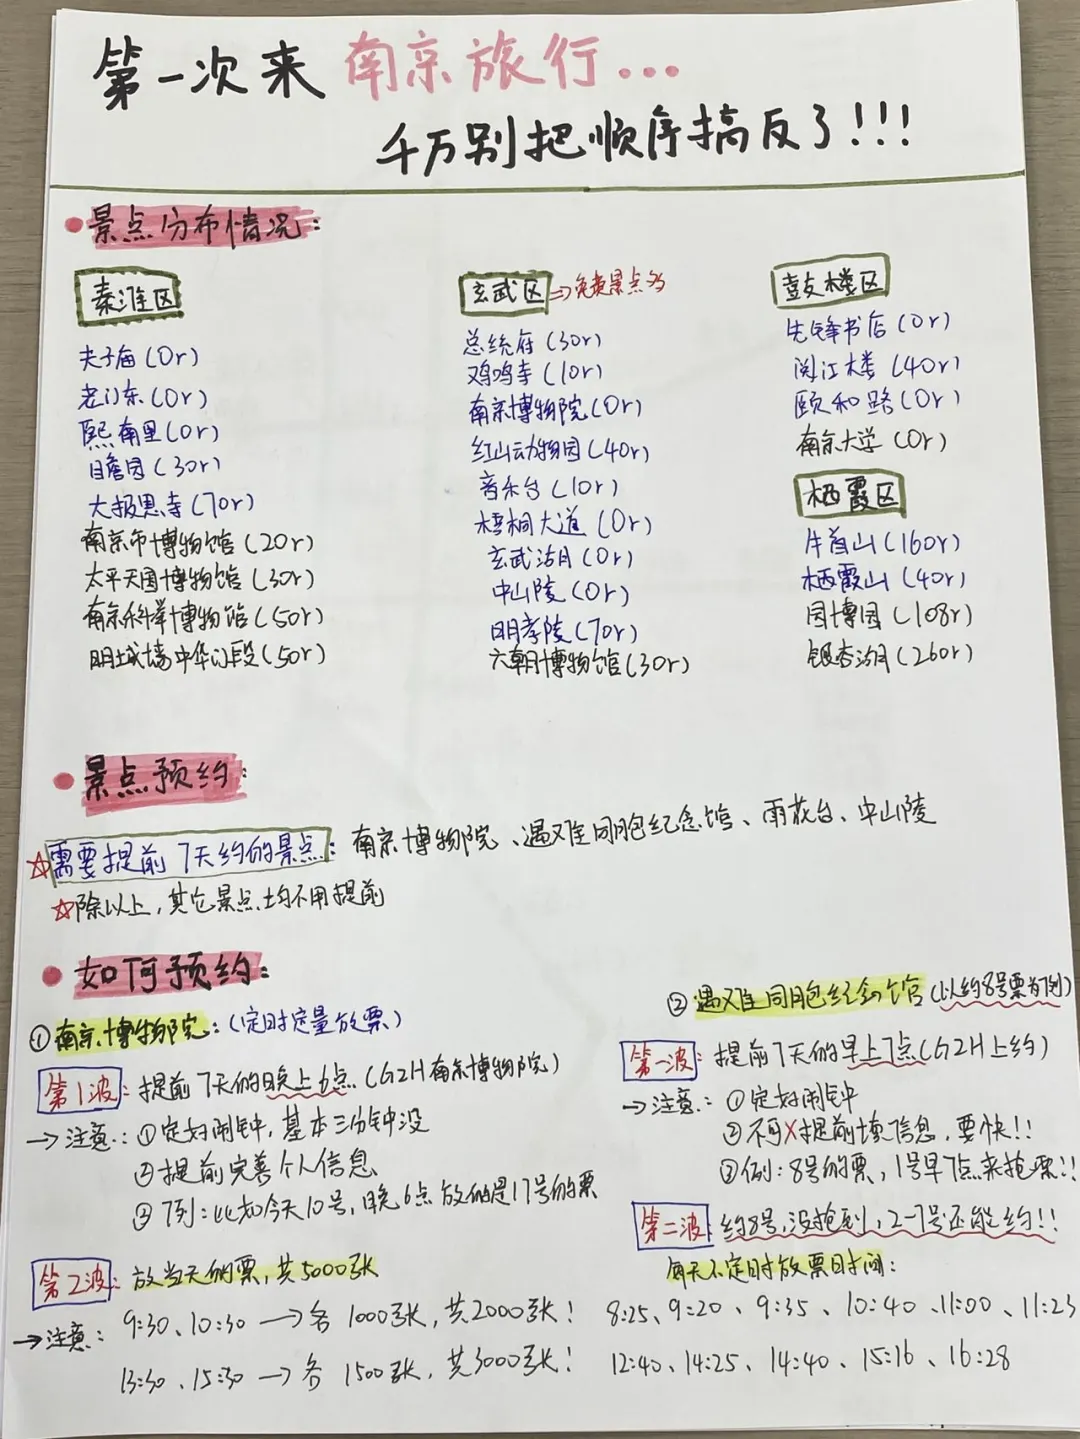 第一次来南京旅行...
千万别把顺序搞反了!!!
景点分布情况:
秦淮区
夫子庙(0r)
老门东(0r)
熙南里(0r)
瞻园(30r)
大报恩寺(70r)
南京市博物馆(20r)
太平天国博物馆(30r)
南京科举博物馆(50r)
明城墙中华门段(50r)
玄武区⇒免费景点多
总统府(30r)
鸡鸣寺(10r)
南京博物院(0r)
红山动物园(40r)
音乐台(10r)
梧桐大道(0r)
玄武湖(0r)
中山陵(0r)
明孝陵(70r)
六朝博物馆(30r)
鼓楼区
先锋书店(0r)
阅江楼(40r)
颐和路(0r)
南京大学(0r)
栖霞区
牛首山(160r)
栖霞山(40r)
园博园(108r)
银杏湖(260r)
景点预约:
☆需要提前7天约的景点:南京博物院、遇难同胞纪念馆、雨花台、中山陵
☆除以上,其它景点均不用提前
如何预约:
①南京博物院:(定时定量放票)
第1波:提前7天的晚上6点(GZH南京博物院)
→注意:①定好闹钟,基本三分钟没
②提前完善个人信息
③例:比如今天10号,晚6点放的是17号的票
第2波:放当天的票,共5000张
→注意:9:30、10:30→各1000张,共2000张!
13:30、15:30→各1500张,共3000张!
②遇难同胞纪念馆(以约8号票为例)
第一波:提前7天的早上7点(GZH上约)
→注意:①定好闹钟
②不可X提前填信息,要快!!
③例:8号的票,1号早7点来抢票!!
第二波:约8号,没抢到,2-7号还能约!!
每天不定时放票时间:
8:25、9:20、9:35、10:40、11:00、11:23
12:40、14:25、14:40、15:16、16:28